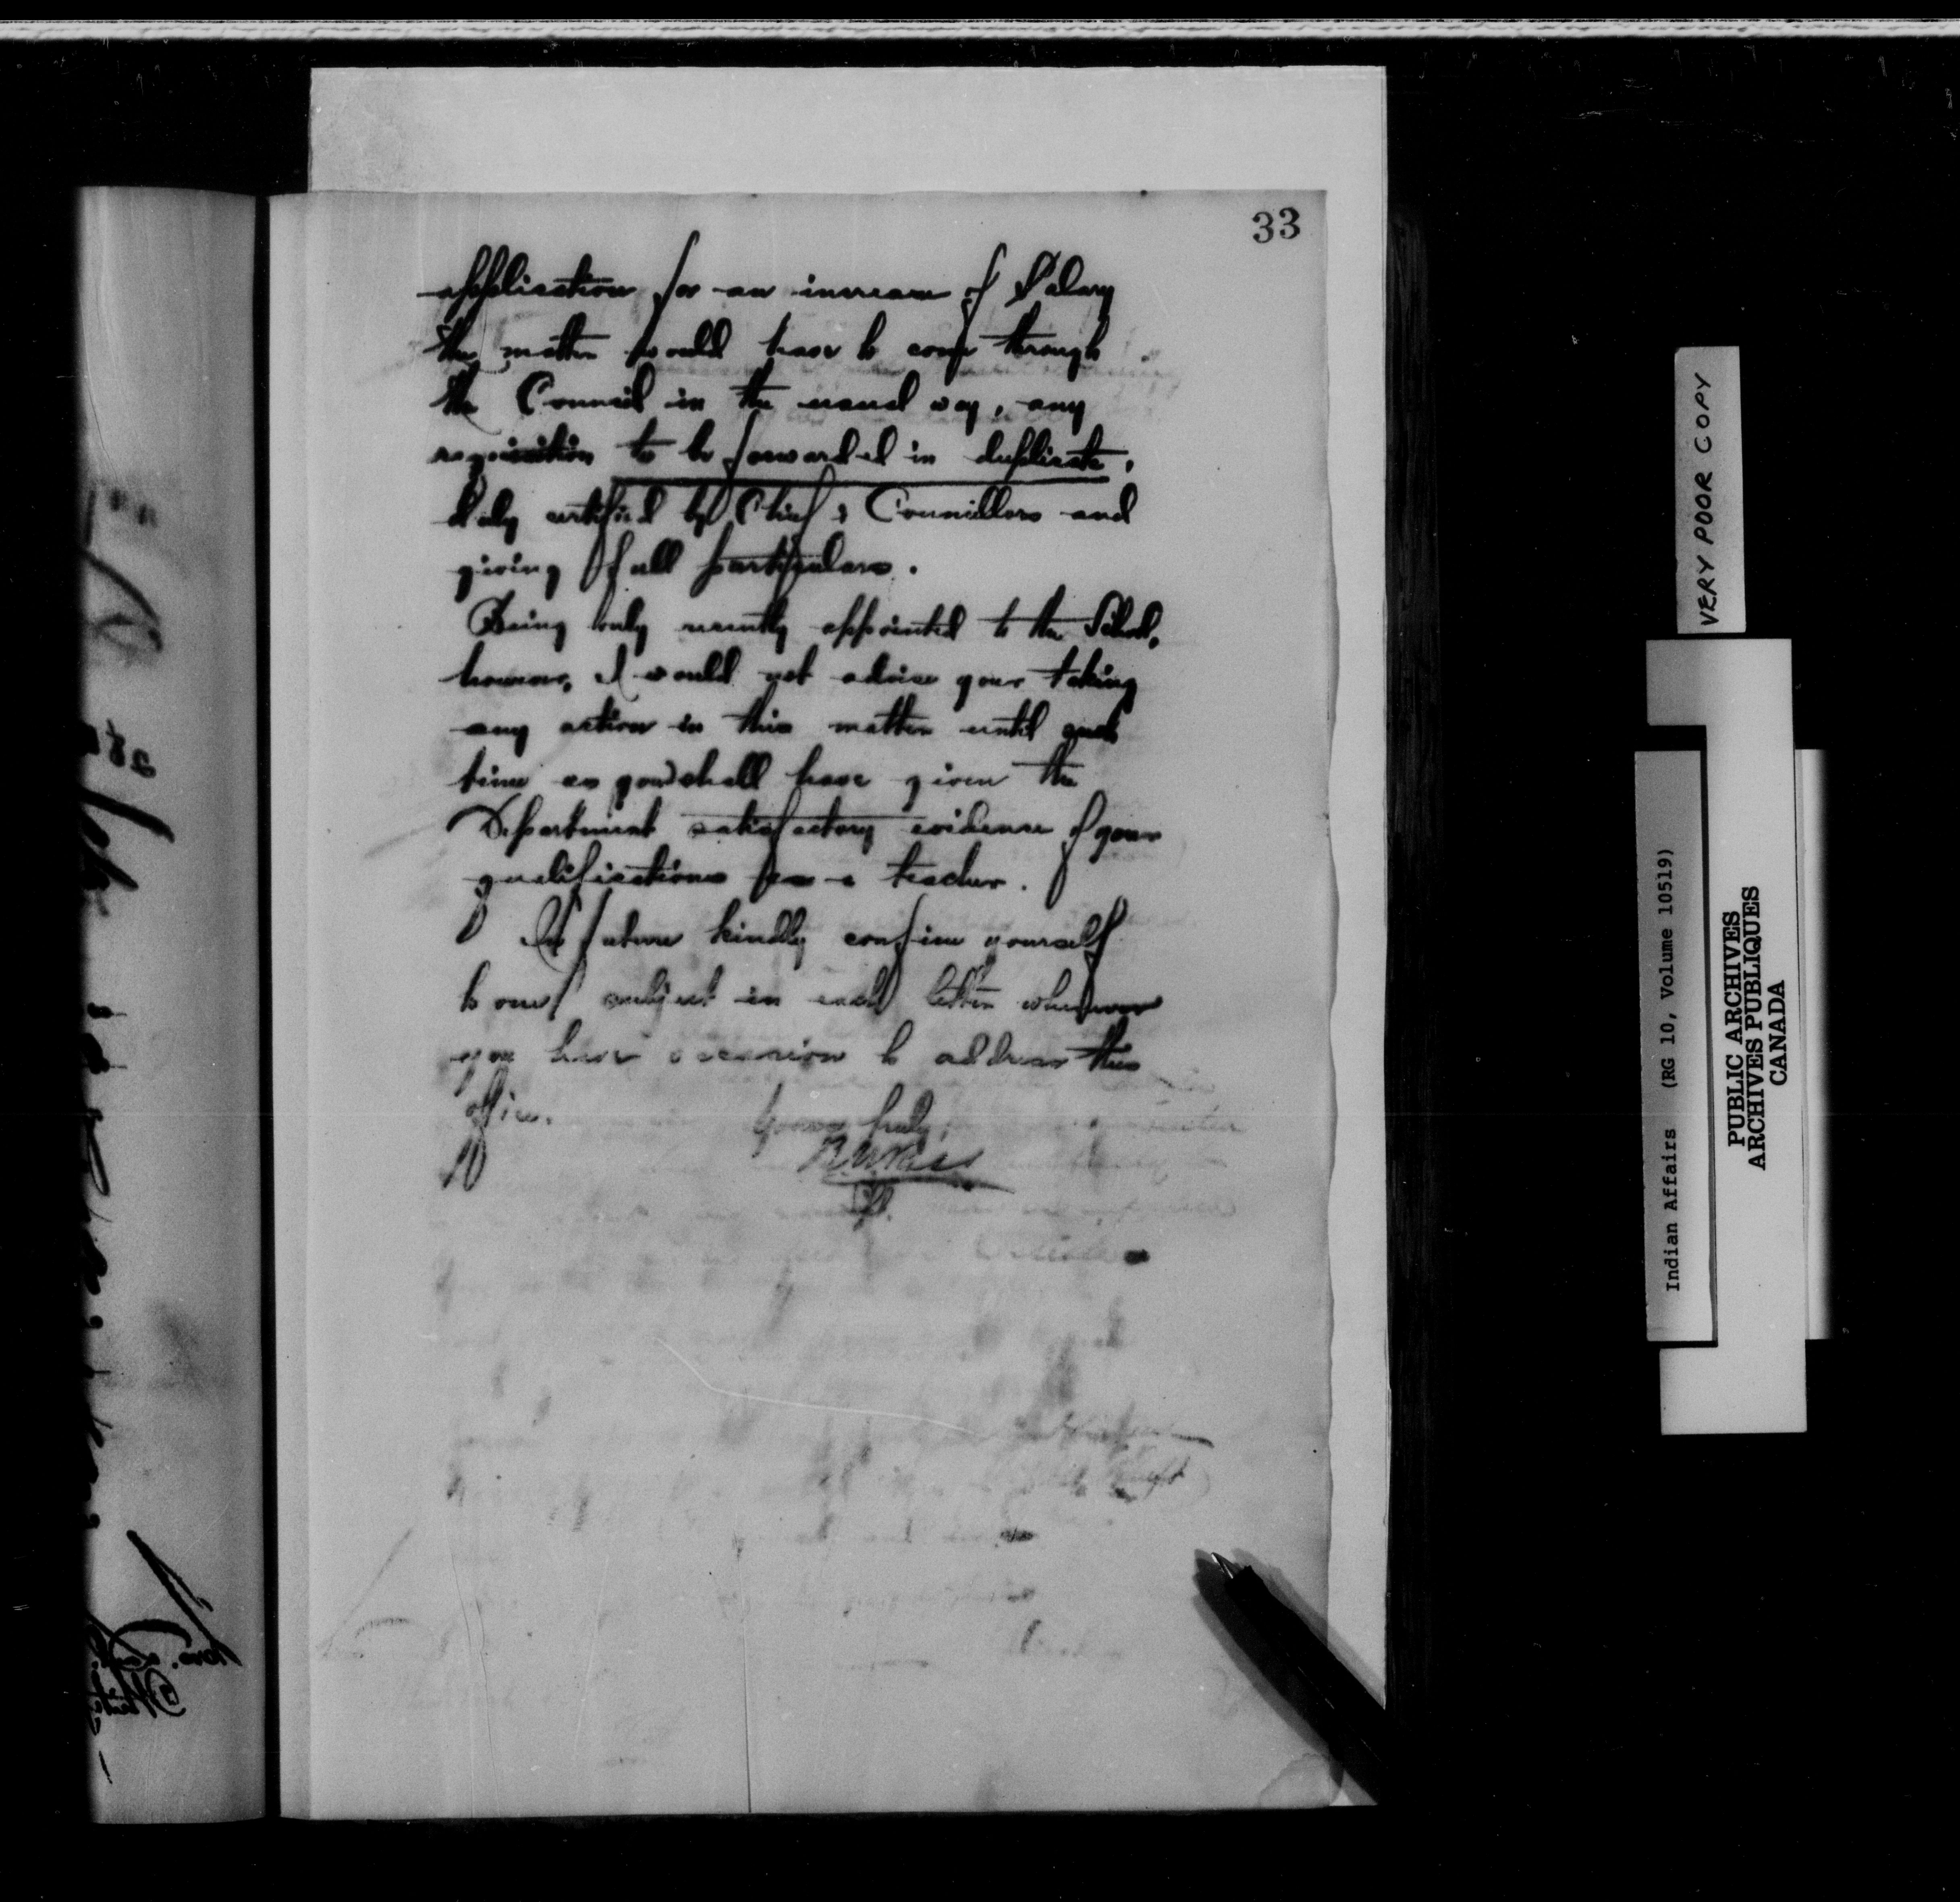 33
application for an increase of Salary
the matter would have to come through
the Council in the usual way, any
requisition to be forwarded in duplicate,
duly certified by Chief & Councillors and
giving full particulars.
Being only recently appointed to the School,
however, I would not advise your taking
any action in this matter until such
time as you shall have given the
Department satisfactory evidence of your
qualifications as a teacher.
In future kindly confine yourself
to one subject in each letter whenever
you have occasion to address this
office.
Yours truly,
VERY POOR COPY
Indian Affairs (RG 10, Volume 10519)
PUBLIC ARCHIVES
ARCHIVES PUBLIQUES
CANADA